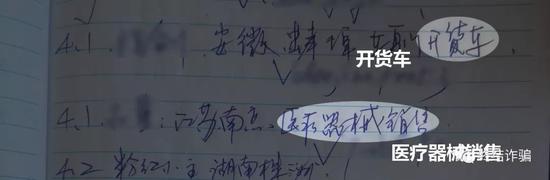 4.1 安徽 蚌埠 开货车
开货车
4.1 : 江苏南京. 医疗器械销售
医疗器械销售
4.2 粉红小主 湖南株洲
诈骗